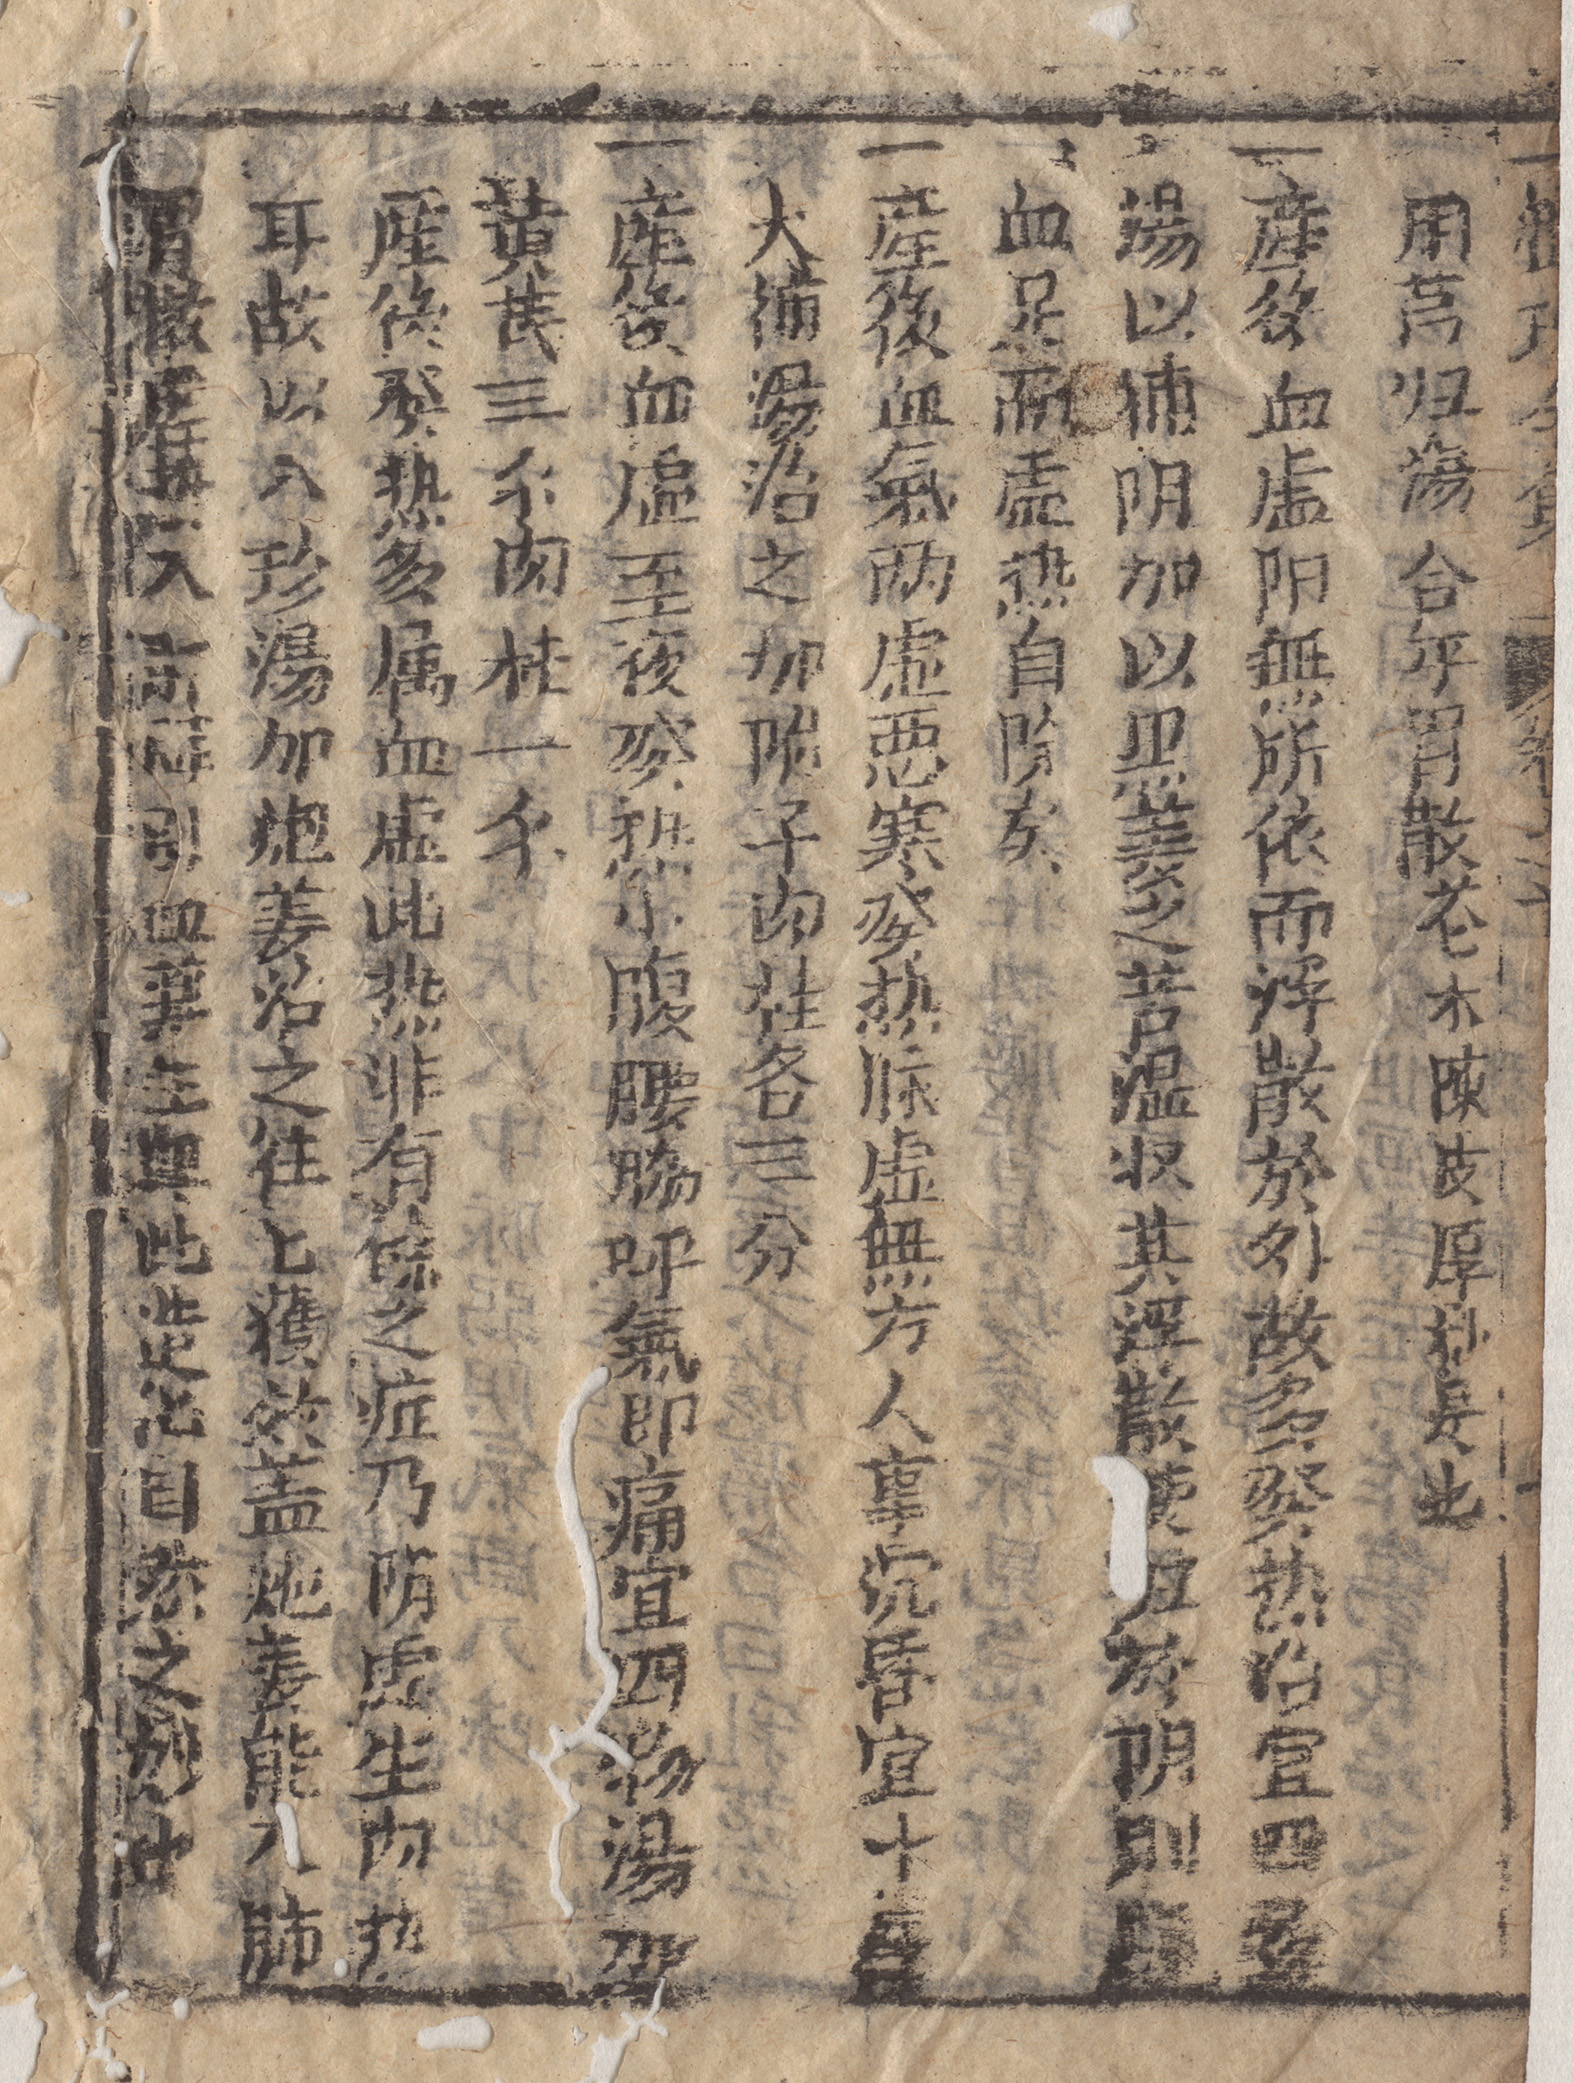 用芎归湯合平胃散苍木陳皮厚朴是也
一產後血虛阴無所依而浮散於外故多發热治宜四物
湯以補阴加以黑姜之苦温収其浮散使归於阴則
血足而虛热自除矣
一產後血氣两虛惡寒發热脉虛無力人事沉昏宜十全
大補湯治之加附子肉桂各三分
一產後血虛至夜發热小腹腰脇呼氣即痛宜四物湯加
黄芪三分肉桂一分
產後發热多属血虛此热非有餘之症乃阴虛生内热
耳故以八珍湯加炮姜治之往七獲效盖炮姜能入肺
分引血藥生血此是治自然之妙也